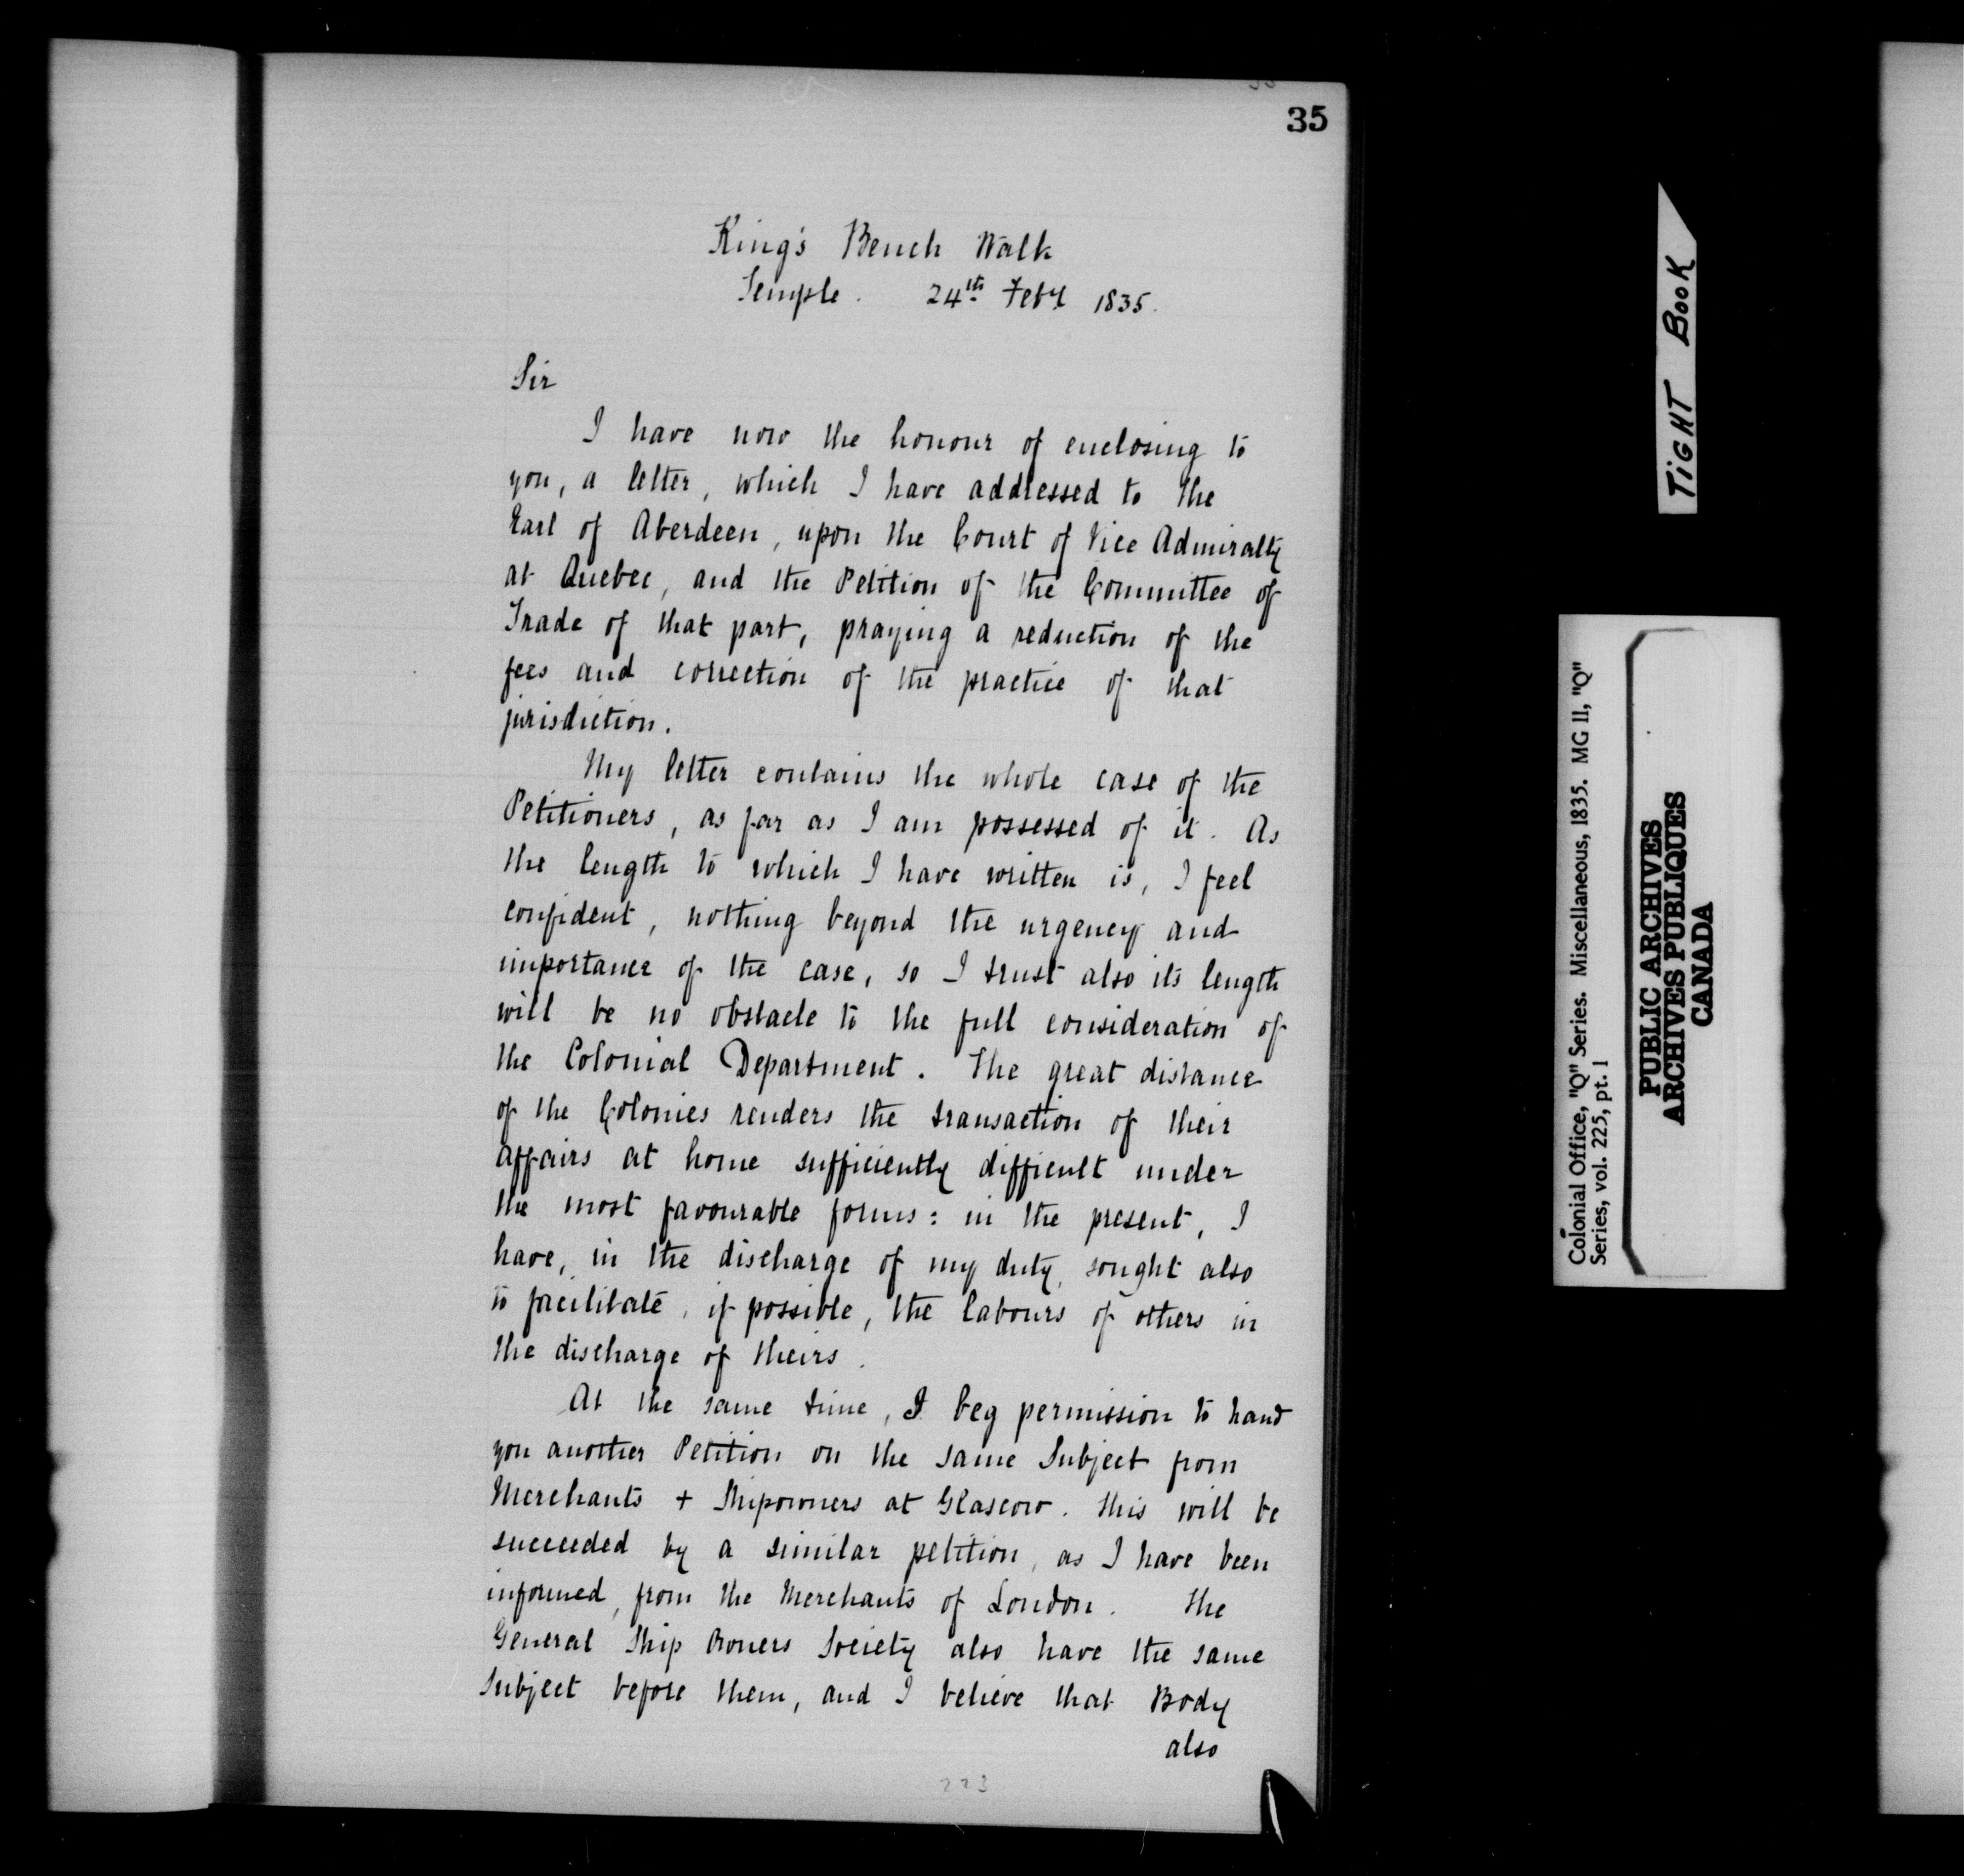 35
King's Bench Walk
Temple. 24th Feby 1835.
Sir
I have now the honour of enclosing to
you, a letter, which I have addressed to the
Earl of Aberdeen, upon the Court of Vice Admiralty
at Quebec, and the Petition of the Committee of
Trade of that part, praying a reduction of the
fees and correction of the practice of that
jurisdiction.
My letter contains the whole case of the
Petitioners, as far as I am possessed of it. As
the length to which I have written is, I feel
confident, nothing beyond the urgency and
importance of the case, so I trust also its length
will be no obstacle to the full consideration of
the Colonial Department. The great distance
of the Colonies renders the transaction of their
affairs at home sufficiently difficult under
the most favourable forms: in the present, I
have, in the discharge of my duty, sought also
to facilitate, if possible, the labours of others in
the discharge of theirs.
At the same time, I beg permission to hand
you another Petition on the same Subject from
Merchants + Shipowners at Glascow. This will be
succeeded by a similar petition, as I have been
informed, from the Merchants of London. The
General Ship Owners Society also have the same
Subject before them, and I believe that Body
also
223
TIGHT BOOK
Colonial Office, "Q" Series. Miscellaneous, 1835. MG 11, "Q"
Series, vol. 225, pt. 1
PUBLIC ARCHIVES
ARCHIVES PUBLIQUES
CANADA